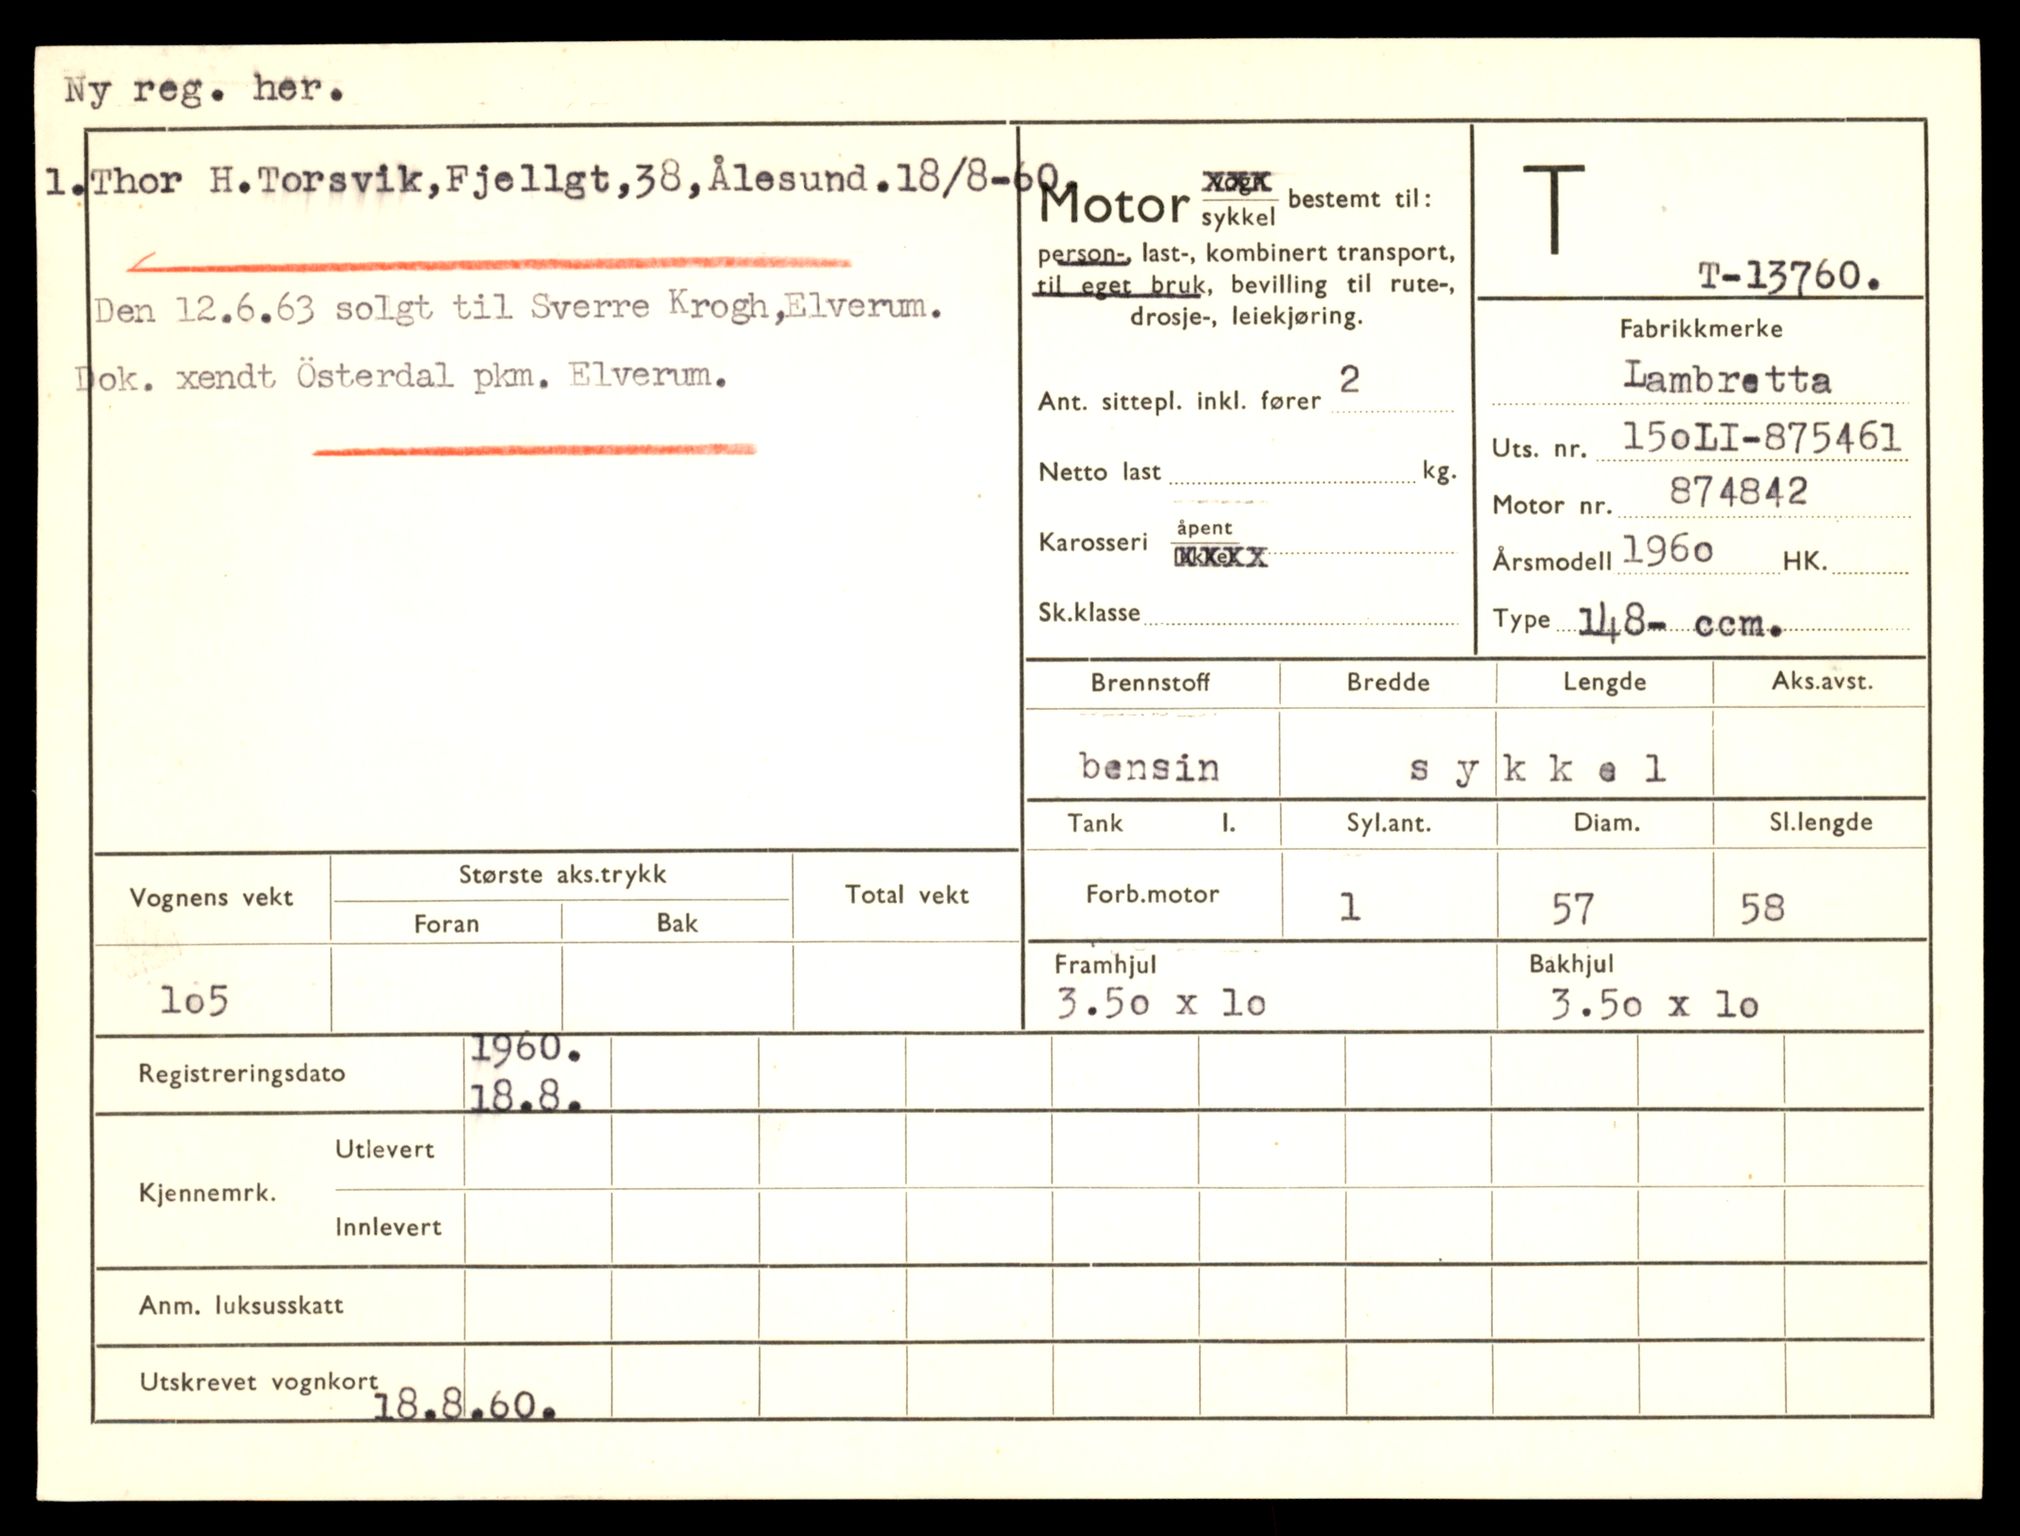 Ny reg. her.
1.Thor H.Torsvik,Fjellgt,38,Ålesund.18/8-60.
Den 12.6.63 solgt til Sverre Krogh,Elverum.
Dok. xendt Österdal pkm. Elverum.
Motor vogn
sykkel bestemt til:
person-, last-, kombinert transport,
til eget bruk, bevilling til rute-,
drosje-, leiekjøring.
Ant. sittepl. inkl. fører 2
Netto last kg.
Karosseri åpent
lukket
Sk.klasse
T
T-13760.
Fabrikkmerke
Lambretta
Uts. nr. 15oLI-875461
Motor nr. 874842
Årsmodell 196o HK.
Type 148- ccm.
Brennstoff Bredde Lengde Aks.avst.
bensin s y k k e l
Tank l. Syl.ant. Diam. Sl.lengde
Forb.motor 1 57 58
Framhjul Bakhjul
3.5o x 1o 3.5o x 1o
Vognens vekt Største aks.trykk Total vekt
Foran Bak
1o5
Registreringsdato 1960.
18.8.
Kjennemrk. Utlevert
Innlevert
Anm. luksusskatt
Utskrevet vognkort
18.8.60.